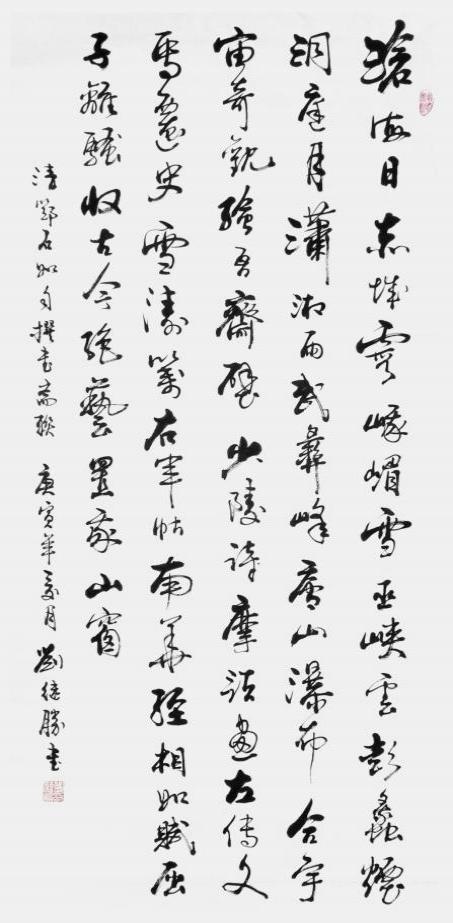 滄海日赤城霞峨嵋雪巫峽雲彭蠡煙
洞庭月瀟湘雨武彝峰廬山瀑布合宇
宙奇觀繪吾齋壁少陵詩摩詰畫左傳文
馬遷史雪濤箋右軍帖南華經相如賦屈
子離騷收古今絕藝置我山窗
清鄧石如自撰書齋聯 庚寅年月劉继勝書